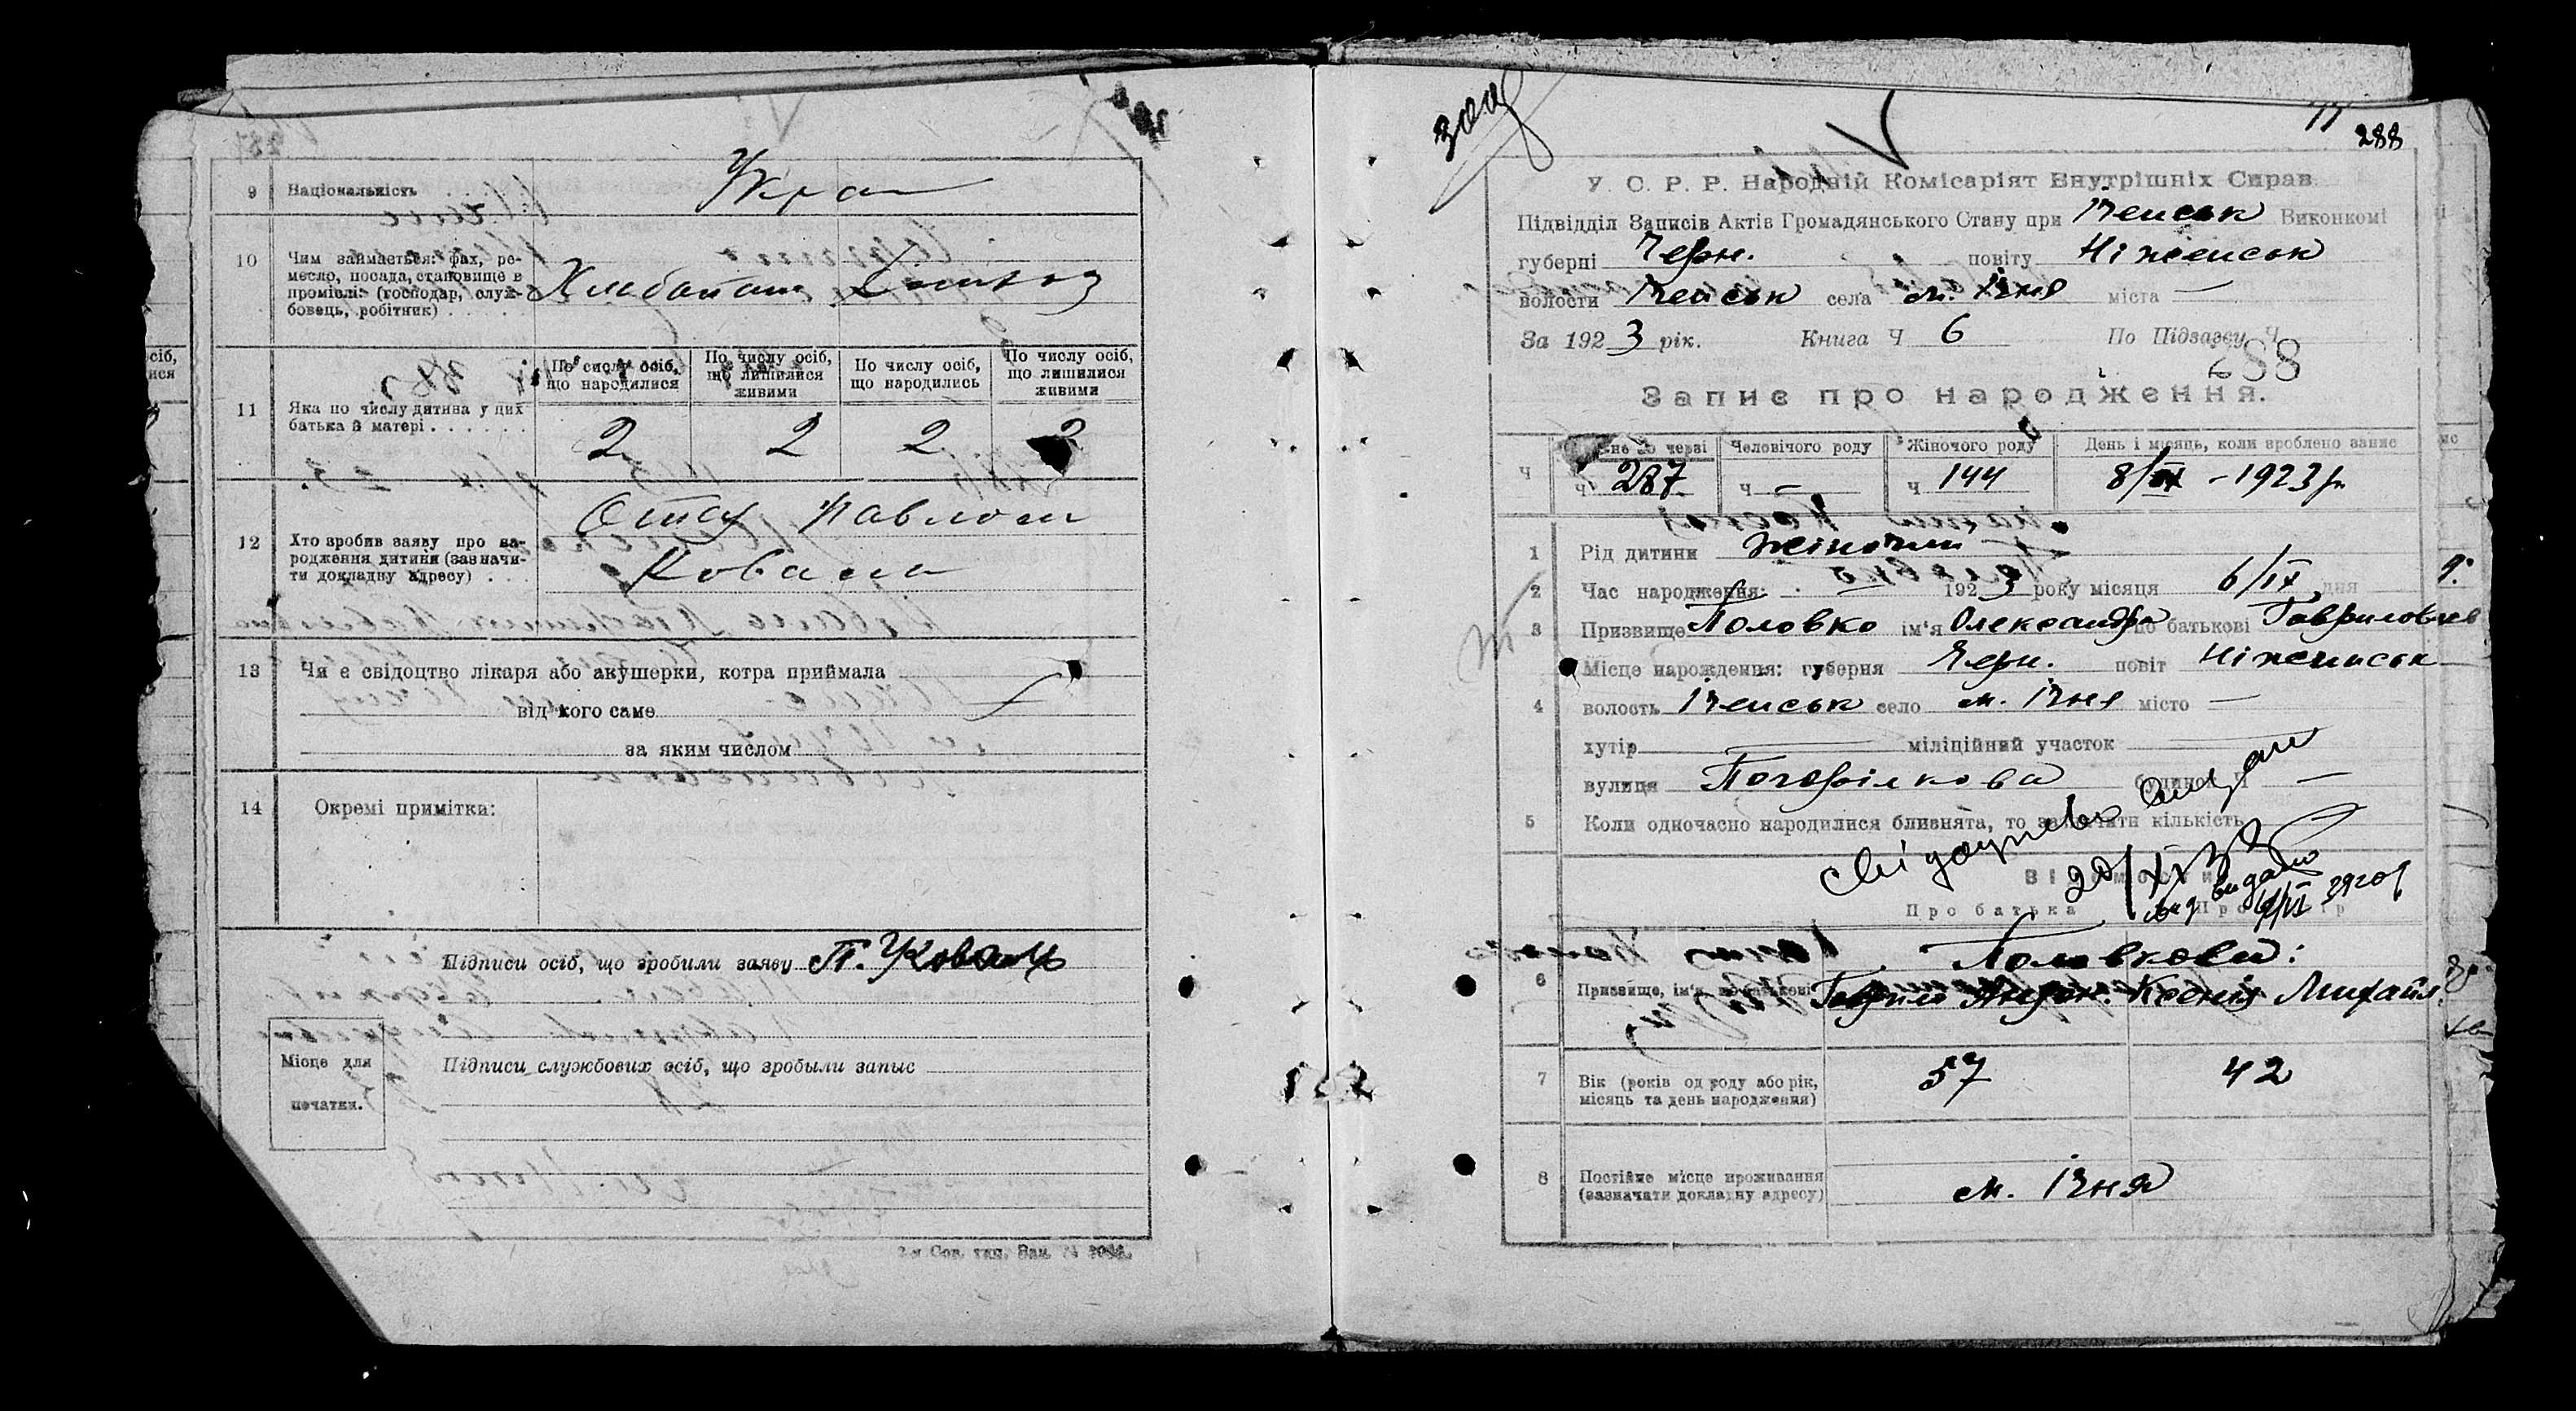 9 Національність Укра
10 Чим займається: фах, ре-
месло, посада, становище в
промислі: (господар, служ-
бовець, робітник) Хлібопаш
11 Яка по числу дитина у цих
батька й матері
По числу осіб, що народилися
По числу осіб, що лишилися живими
По числу осіб, що народились
По числу осіб, що лишилися живими
2 2 2 2
12 Хто зробив заяву про на-
родження дитини (зазначи-
ти докладну адресу)
Отец Павлом
Коваль
13 Чи є свідоцтво лікаря або акушерки, котра приймала
від кого саме
за яким числом
14 Окремі примітки:
Підписи осіб, що зробили заяву П. Коваль
Місце для
печатки.
Підписи службових осіб, що зробыли запыс
288
У. С. Р. Р. Народній Комісаріят Внутрішніх Справ
Підвідділ Записів Актів Громадянського Стану при Іченськ Виконкомі
губерні Черн. повіту Ніженськ
волости Іченськ села м. Ічня міста —
За 1923 рік. Книга Ч 6 По Підзагсу Ч
288
Запис про народження.
Ч 287
Человічого роду
ч —
Жіночого роду
ч 144
День і місяць, коли зроблено запис
8/IX - 1923 р.
1 Рід дитини Жіночий
2 Час народження: 1923 року місяця 6/IX дня
3 Призвище Половко ім'я Олександра по батькові Гавриловна
4 Місце народження: губерня Черн. повіт Ніженськ
волость Іченськ село м. Ічня місто —
хутір міліційний участок
вулиця будинок Ч —
5 Коли одночасно народилися близнята, то зазначити кількість
Свідоцтво видан
Відомости
Про батька
Половкови:
6 Призвище, ім'я, по батькові Гаврило Ксенія Михайл.
7 Вік (років од роду або рік,
місяць та день народження) 57 42
8 Постійне місце проживання
(зазначати докладну адресу) м. Ічня